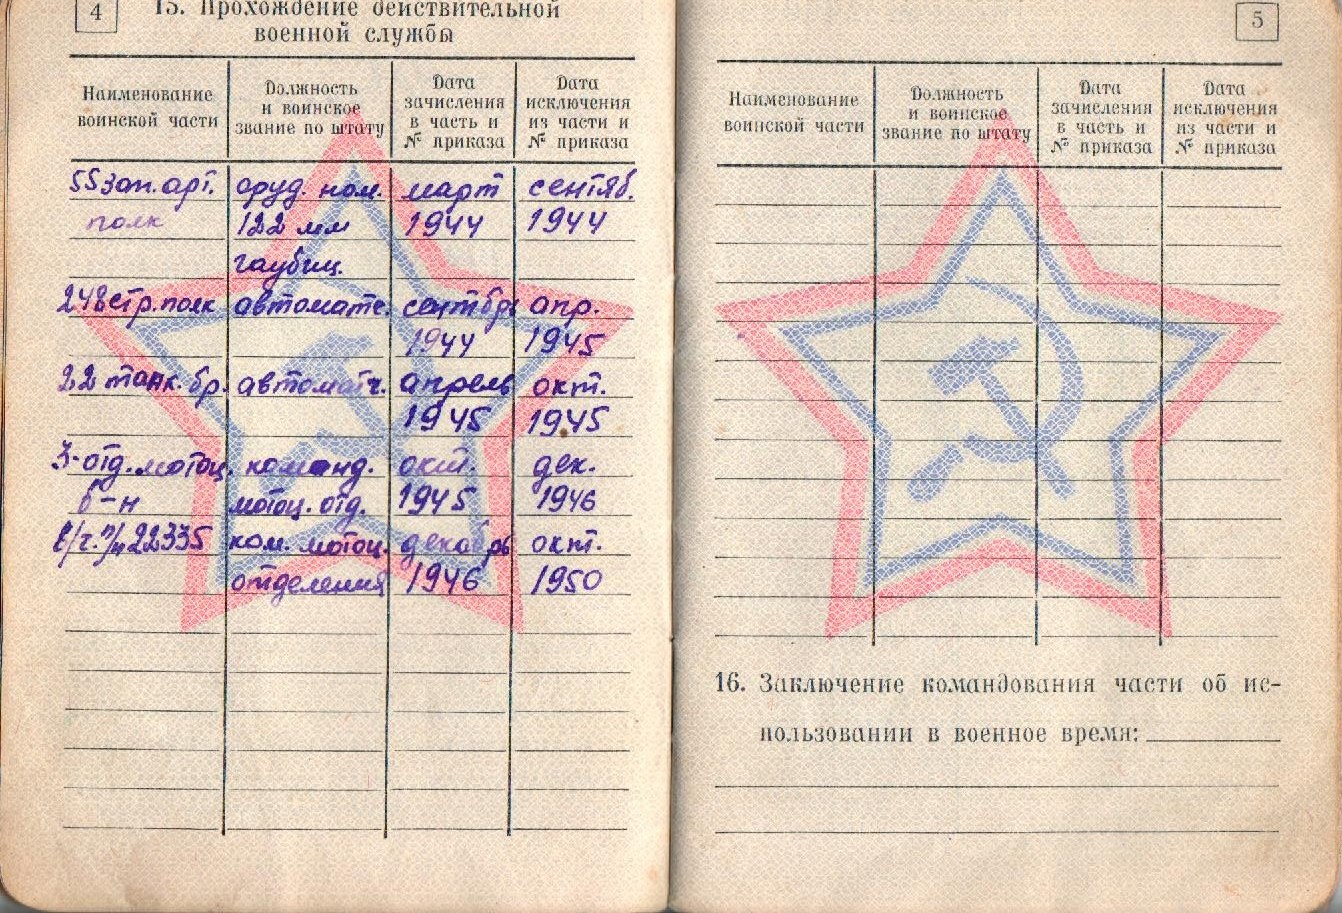 4
15. Прохождение действительной
военной службы
Наименование
воинской части
Должность
и воинское
звание по штату
Дата
зачисления
в часть и
№ приказа
Дата
исключения
из части и
№ приказа
55 зап. арт. оруд. ном. март сентяб.
полк 122 мм 1944 1944
гаубиц.
248 стр. полк автоматч. сентябрь апр.
1944 1945
22 танк. бр. автоматч. апрель окт.
1945 1945
3-отд. мотоц. команд. окт. дек.
б-н мотоц. отд. 1945 1946
в/ч. п/п 22335 ком. мотоц. декабрь окт.
отделения 1946 1950
5
Наименование
воинской части
Должность
и воинское
звание по штату
Дата
зачисления
в часть и
№ приказа
Дата
исключения
из части и
№ приказа
16. Заключение командования части об ис-
пользовании в военное время: